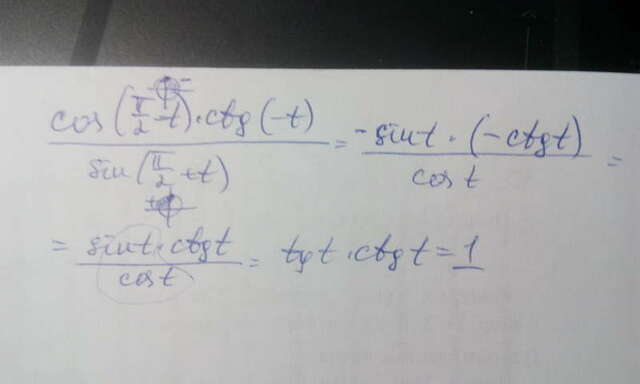 cos(π/2 - t) · ctg(-t) / sin(π/2 + t) = -sint · (-ctgt) / cos t =
= sint · ctgt / cost = tgt · ctgt = 1